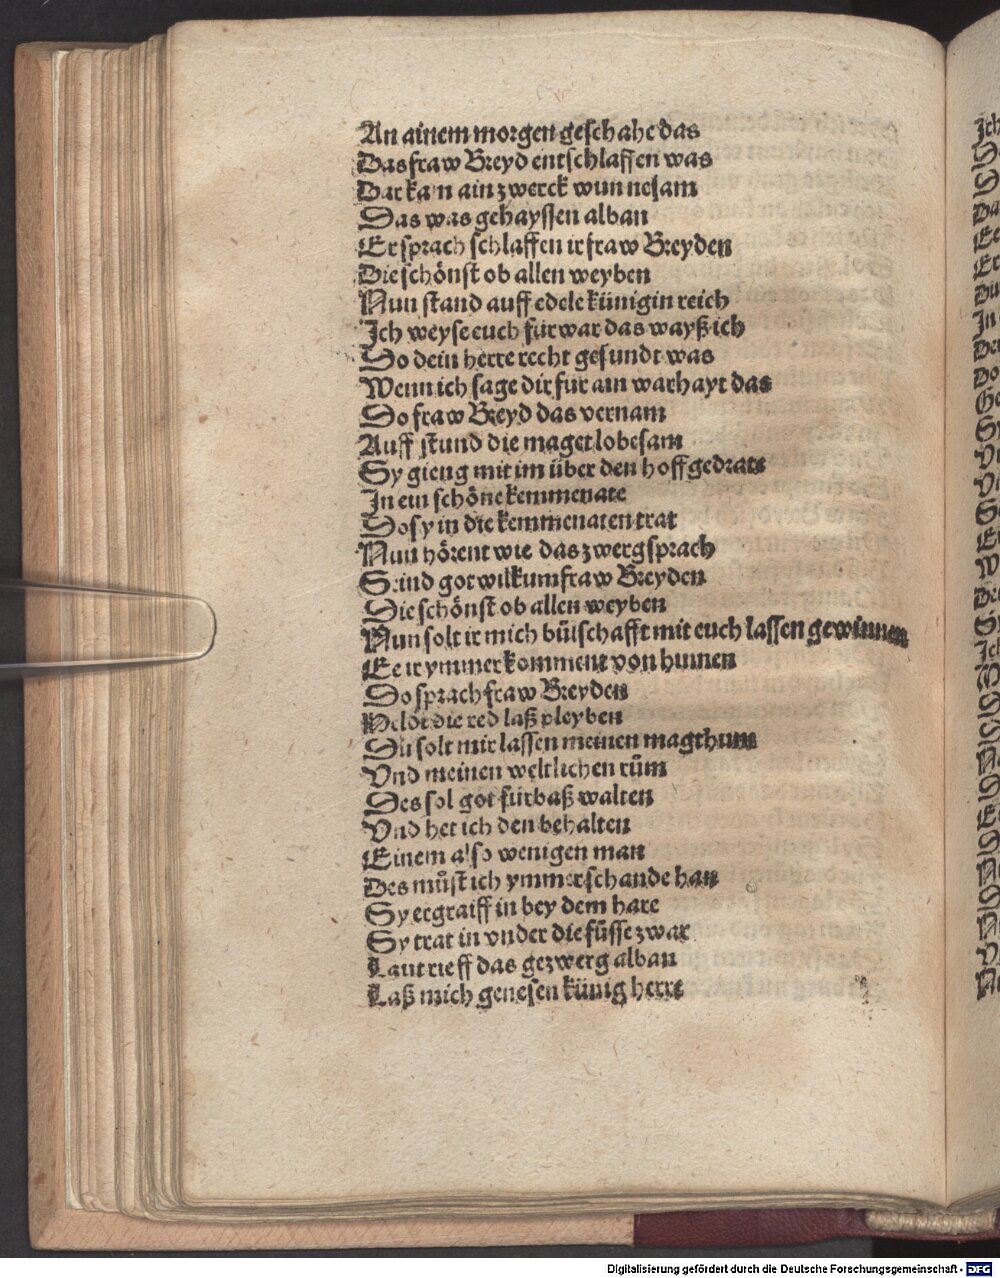 An ainem morgen geschahe das
Das fraw Breyd entschlaffen was
Dar kam ain zwerck wunnesam
Das was gehayssen alban
Er sprach schlaffen ir fraw Breyden
Die schönst ob allen weyben
Nun stand auff edele künigin reich
Ich weyse euch für war das wayß ich
Do dein herre recht gesundt was
Wenn ich sage dir fur ain warhayt das
Do fraw Breyd das vernam
Auff stund die maget lobesam
Sy gieng mit im über den hoff gedrate
In ein schöne kemmenate
Do sy in die kemmenaten trat
Nun hörent wie das zwerg sprach
Seind got wilkum fraw Breyden
Die schönst ob allen weyben
Nun solt ir mich bůlschafft mit euch lassen gewinnen
Ee ir ymmer komment von hinnen
Do sprach fraw Breyden
die red laß pleyben
Du solt mir lassen meinen magthum
Vnd meinen weltlichen rům
Des sol got fürbaß walten
Vnd het ich den behalten
Einem also wenigen man
Des můst ich ymmer schande han
Sy ergraiff in bey dem hare
Sy trat in vnder die füsse zwar
Laut rieff das gezwerg alban
Laß mich genesen künig herre
Digitalisierung gefördert durch die Deutsche Forschungsgemeinschaft - DFG